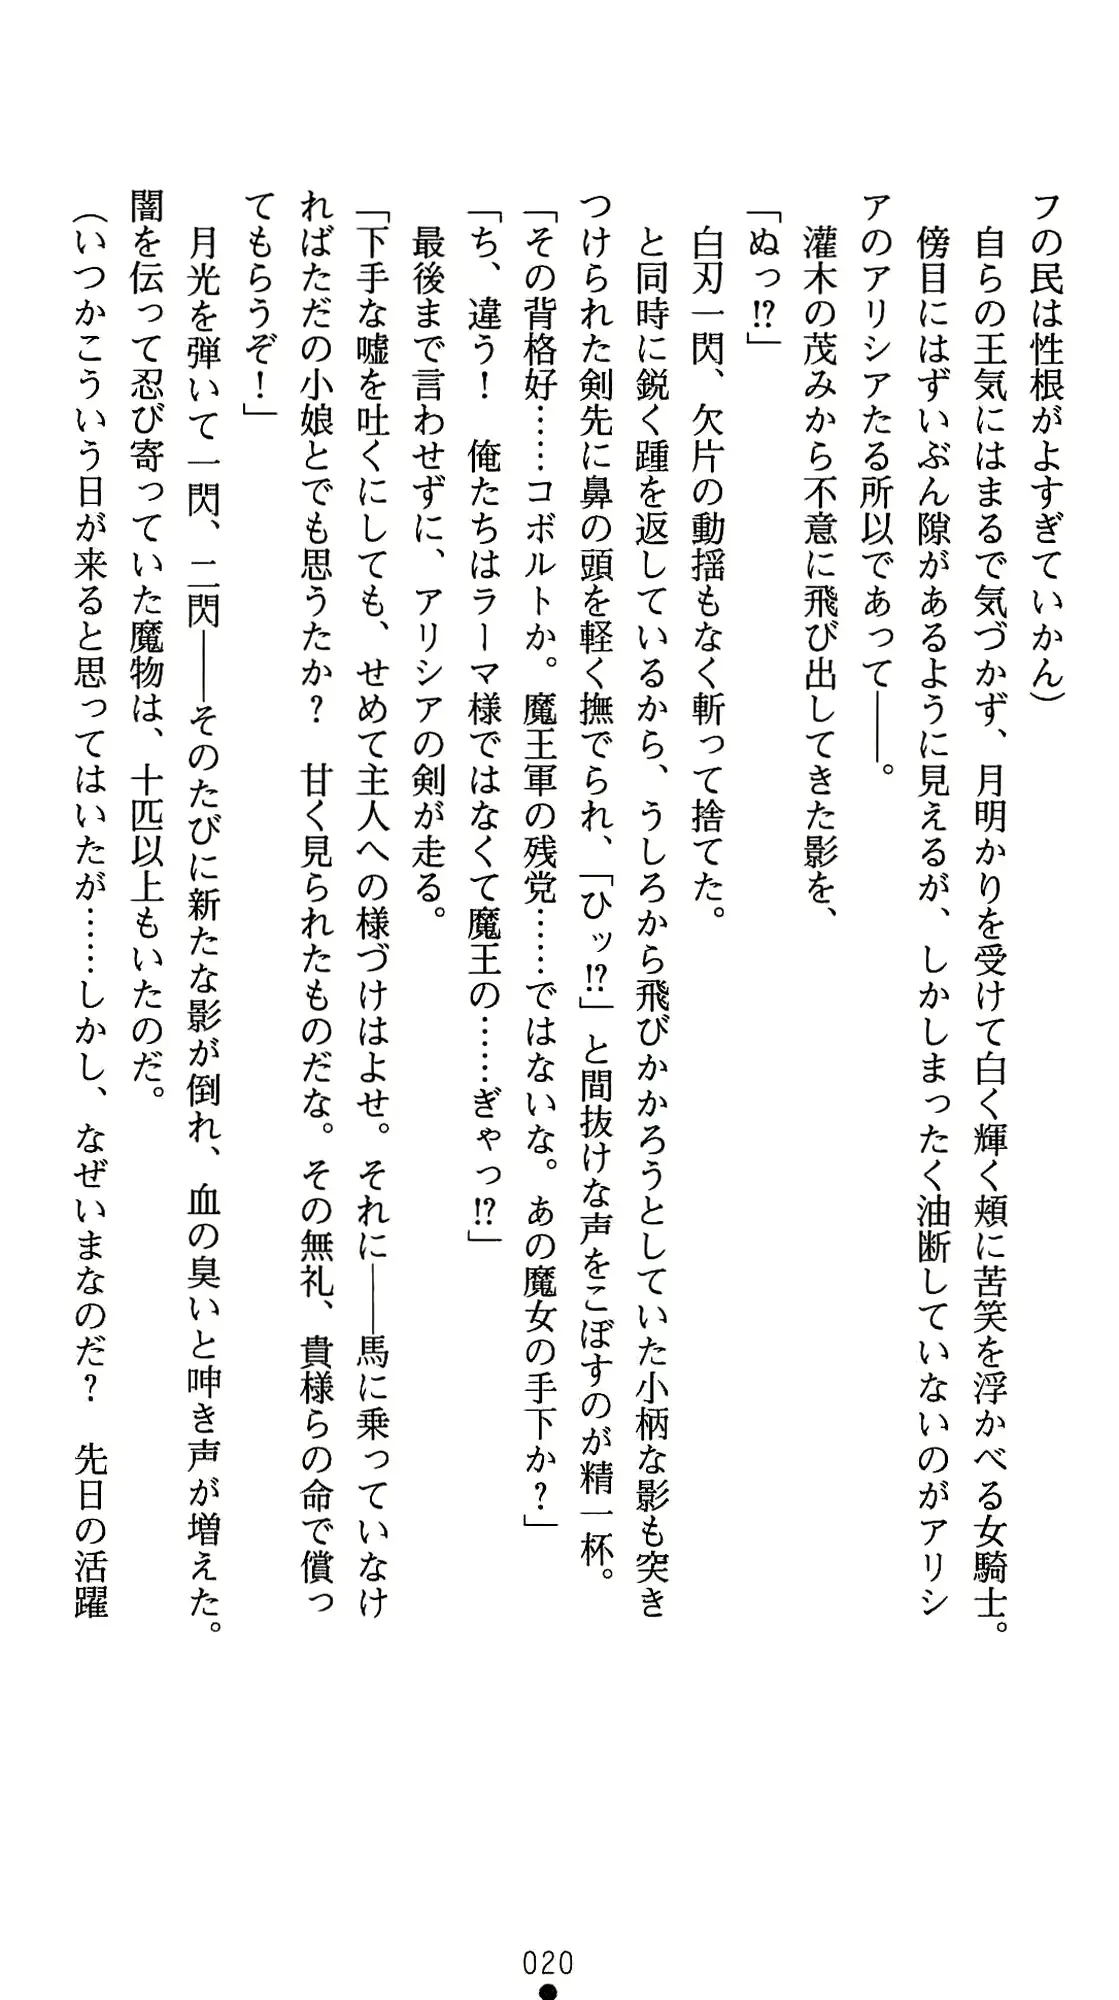 フの民は性根がよすぎていかん）
　自らの王気にはまるで気づかず、月明かりを受けて白く輝く頬に苦笑を浮かべる女騎士。
　傍目にはずいぶん隙があるように見えるが、しかしまったく油断していないのがアリシ
アのアリシアたる所以であって――。
　灌木の茂みから不意に飛び出してきた影を、
「ぬっ!?」
　白刃一閃、欠片の動揺もなく斬って捨てた。
　と同時に鋭く踵を返しているから、うしろから飛びかかろうとしていた小柄な影も突き
つけられた剣先に鼻の頭を軽く撫でられ、「ひッ!?」と間抜けな声をこぼすのが精一杯。
「その背格好……コボルトか。魔王軍の残党……ではないな。あの魔女の手下か？」
「ち、違う！　俺たちはラーマ様ではなくて魔王の……ぎゃっ!?」
　最後まで言わせずに、アリシアの剣が走る。
「下手な嘘を吐くにしても、せめて主人への様づけはよせ。それに――馬に乗っていなけ
ればただの小娘とでも思うたか？　甘く見られたものだな。その無礼、貴様らの命で償っ
てもらうぞ！」
　月光を弾いて一閃、二閃――そのたびに新たな影が倒れ、血の臭いと呻き声が増えた。
闇を伝って忍び寄っていた魔物は、十匹以上もいたのだ。
（いつかこういう日が来ると思ってはいたが……しかし、なぜいまなのだ？　先日の活躍
020